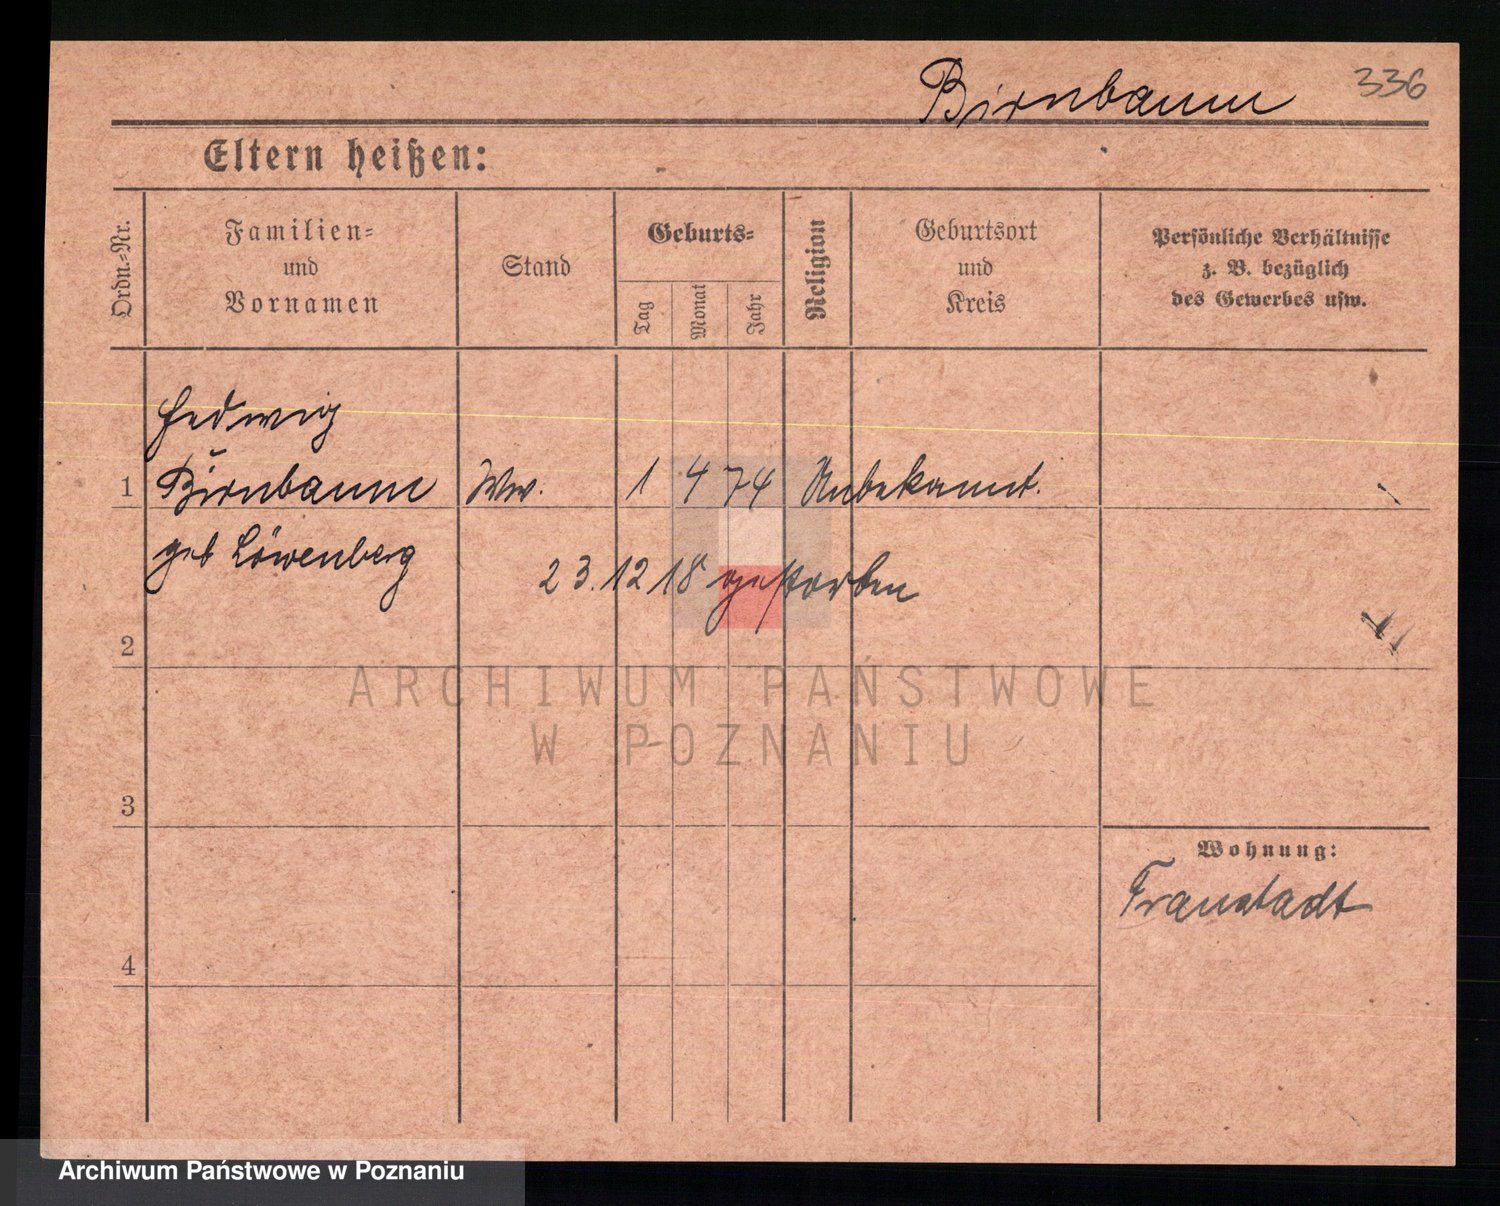 Birnbaum 336
Eltern heißen:
Ordn.-Nr.
Familien-
und
Vornamen
Stand
Geburts-
Tag
Monat
Jahr
Religion
Geburtsort
und
Kreis
Persönliche Verhältnisse
z. B. bezüglich
des Gewerbes usw.
Hedwig
1 Birnbaum Ww. 1 4 74 Unbekannt.
geb Löwenberg
23.12 18 gestorben
2
ARCHIWUM PAŃSTWOWE
W POZNANIU
3
Wohnung:
Fraustadt
4
Archiwum Państwowe w Poznaniu